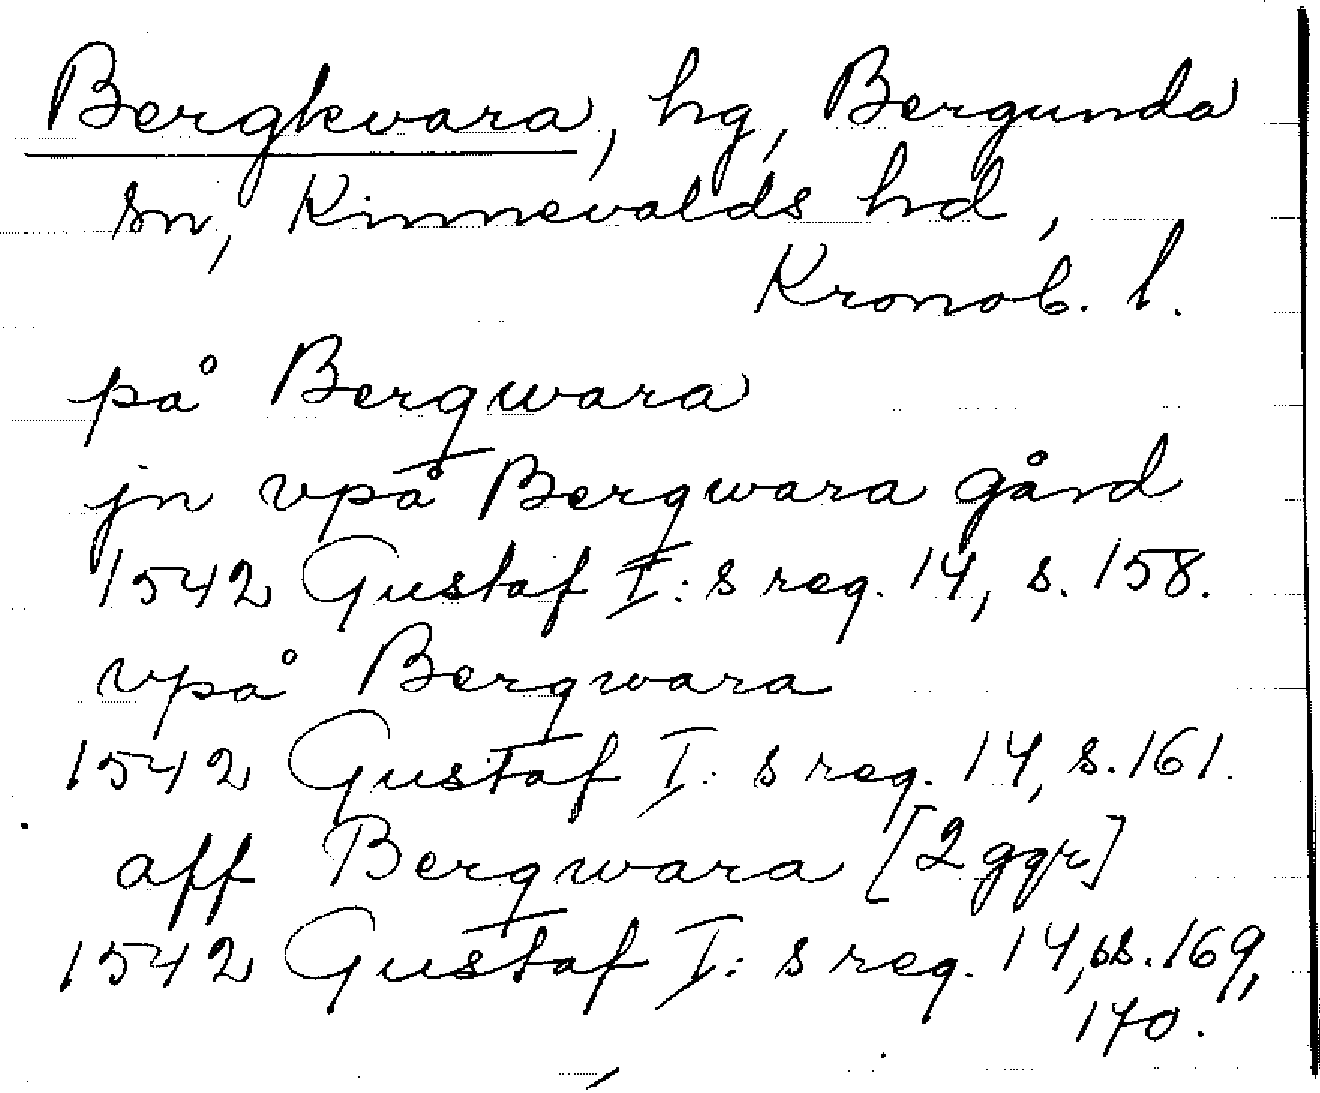 Bergkvara, hg, Bergunda
sn, Kinnevalds hd,
Kronob. l.
på Bergwara
jn vpå Bergwara gård
1542 Gustaf I:s reg. 14, s. 158.
vpå Bergwara
1542 Gustaf I:s reg. 14, s. 161.
aff Bergwara [2 ggr]
1542 Gustaf I:s reg. 14, ss. 169,
170.